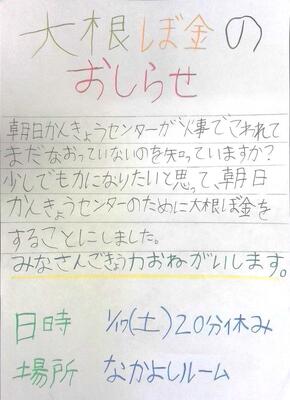 大根ぼ金の
おしらせ
朝日かんきょうセンターが火事でこわれて
まだなおっていないのを知っていますか?
少しでも力になりたいと思って、朝日
かんきょうセンターのために大根ぼ金を
することにしました。
みなさんごきょう力おねがいします。
日時 1/17(土)20分休み
場所 なかよしルーム